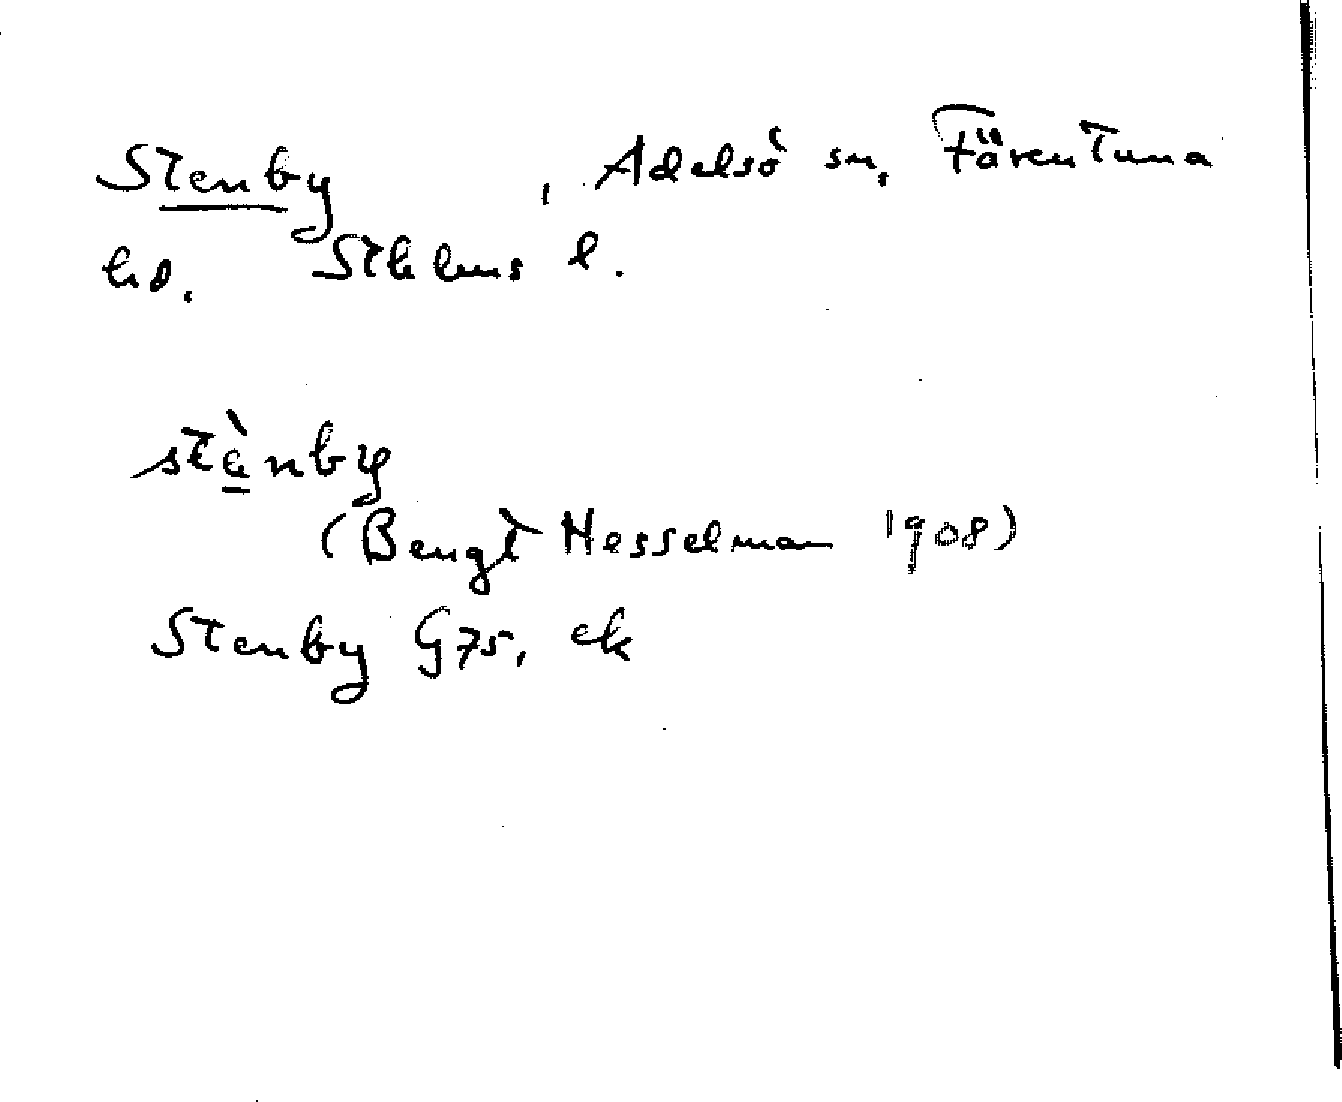 Stenby, Adelsö sn, Färentuna
hd. Sthlms l.
stè̲nby
(Bengt Hesselman 1908)
Stenby G75, ek